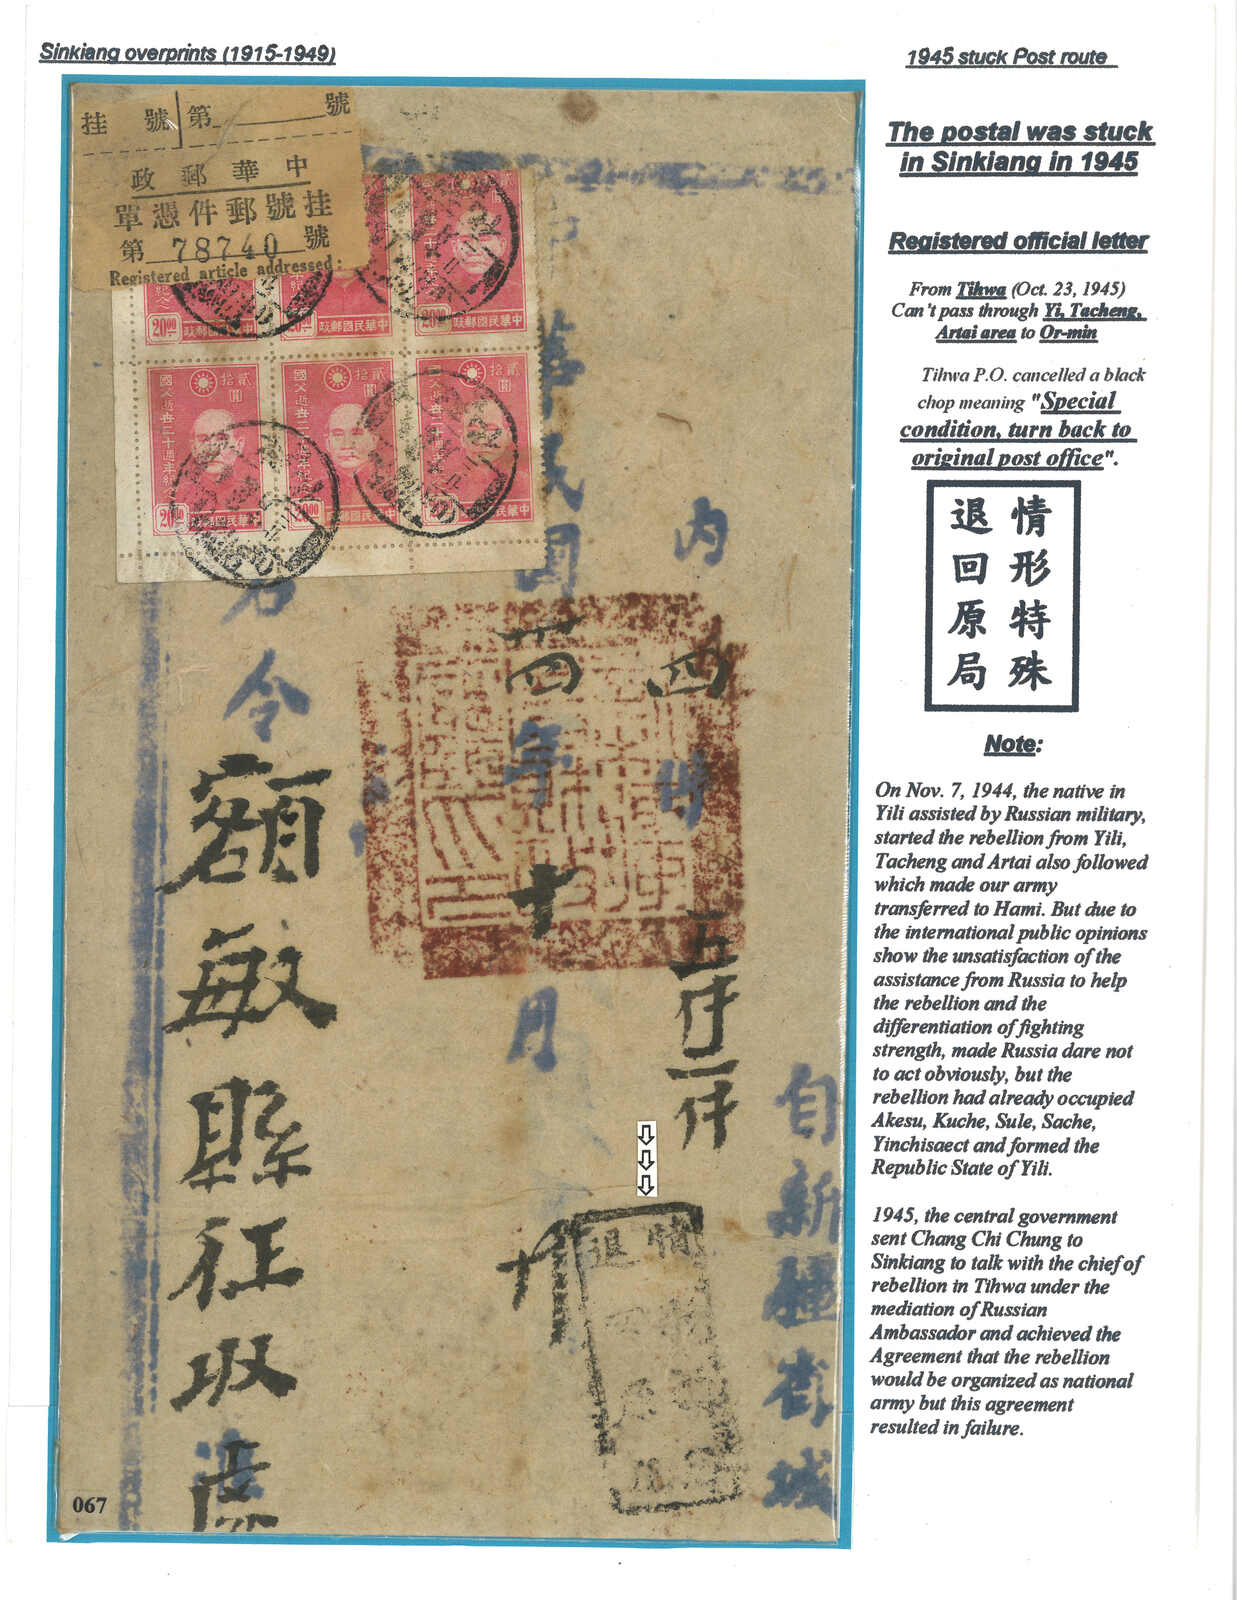 Sinkiang overprints (1915-1949)
1945 stuck Post route
挂號 第 號
中華郵政
挂號郵件憑單
第 78740 號
Registered article addressed:
20.00
中華民國郵政
20.00
中華民國郵政
20.00
中華民國郵政
貳拾圓
國父逝世二十週年紀念
20.00
中華民國郵政
貳拾圓
國父逝世二十週年紀念
20.00
中華民國郵政
貳拾圓
自新疆省城
內四件
中華民國卅四年十月廿
右令
額敏縣征收
情形特殊
退回原局
067
The postal was stuck
in Sinkiang in 1945
Registered official letter
From Tihwa (Oct. 23, 1945)
Can't pass through Yi, Tacheng,
Artai area to Or-min
Tihwa P.O. cancelled a black
chop meaning "Special
condition, turn back to
original post office".
情形特殊
退回原局
Note:
On Nov. 7, 1944, the native in
Yili assisted by Russian military,
started the rebellion from Yili,
Tacheng and Artai also followed
which made our army
transferred to Hami. But due to
the international public opinions
show the unsatisfaction of the
assistance from Russia to help
the rebellion and the
differentiation of fighting
strength, made Russia dare not
to act obviously, but the
rebellion had already occupied
Akesu, Kuche, Sule, Sache,
Yinchisaect and formed the
Republic State of Yili.
1945, the central government
sent Chang Chi Chung to
Sinkiang to talk with the chief of
rebellion in Tihwa under the
mediation of Russian
Ambassador and achieved the
Agreement that the rebellion
would be organized as national
army but this agreement
resulted in failure.